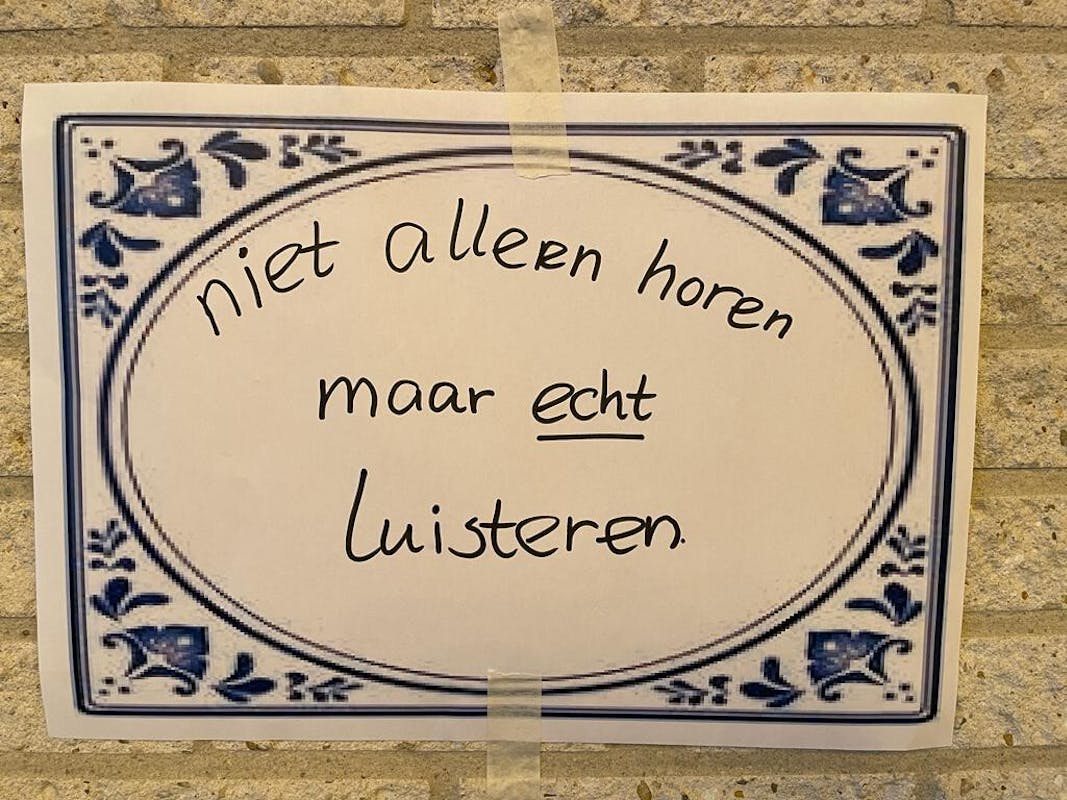 niet alleen horen
maar echt
luisteren.